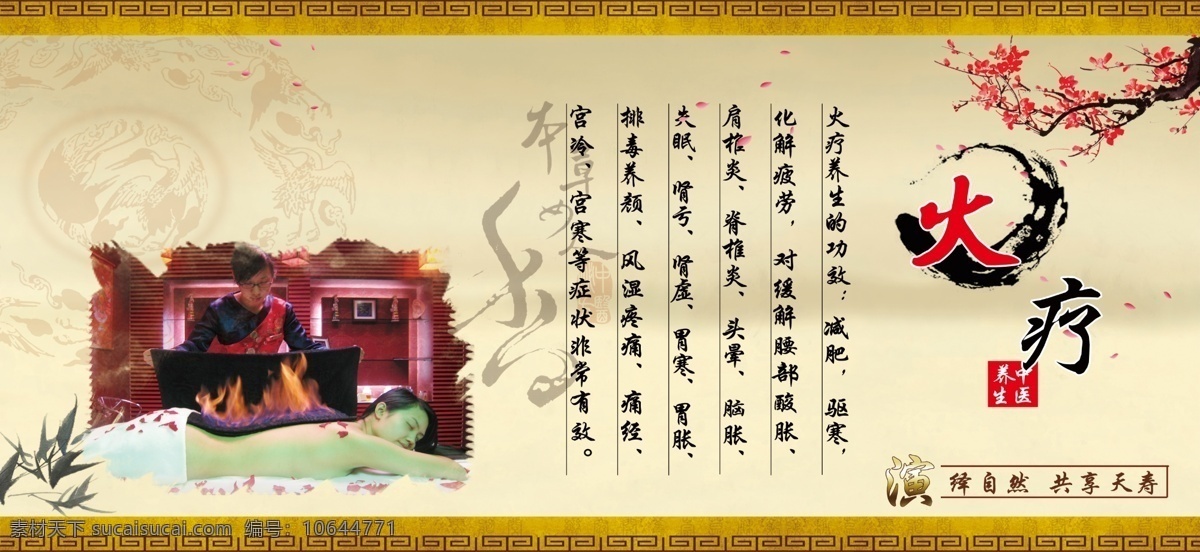 火疗
中医
养生
火疗养生的功效：减肥，驱寒，
化解疲劳，对缓解腰部酸胀、
肩椎炎、脊椎炎、头晕、脑胀、
失眠、肾亏、肾虚、胃寒、胃胀、
排毒养颜、风湿疼痛、痛经、
宫冷、宫寒等症状非常有效。
本草
演绎自然 共享天寿
素材天下 sucaisucai.com 编号：10644771